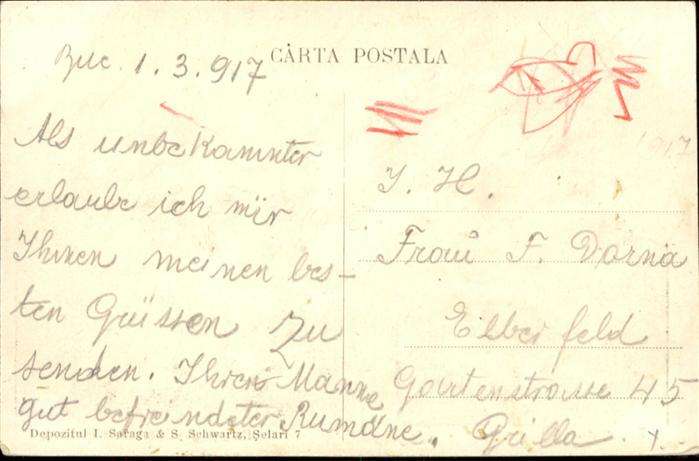 CÁRTA POSTALA
Buc. 1.3.917
Als unbekannter
erlaube ich mir
Ihnen meinen bes-
ten Grüssen zu
senden. Ihrem Manne
gut befreindeter Rumäne.
1917
I. H.
Frau F. Dorna
Elberfeld
Gartenstrasse 45
Depozitul I. Saraga & S. Schwartz, Șelari 7